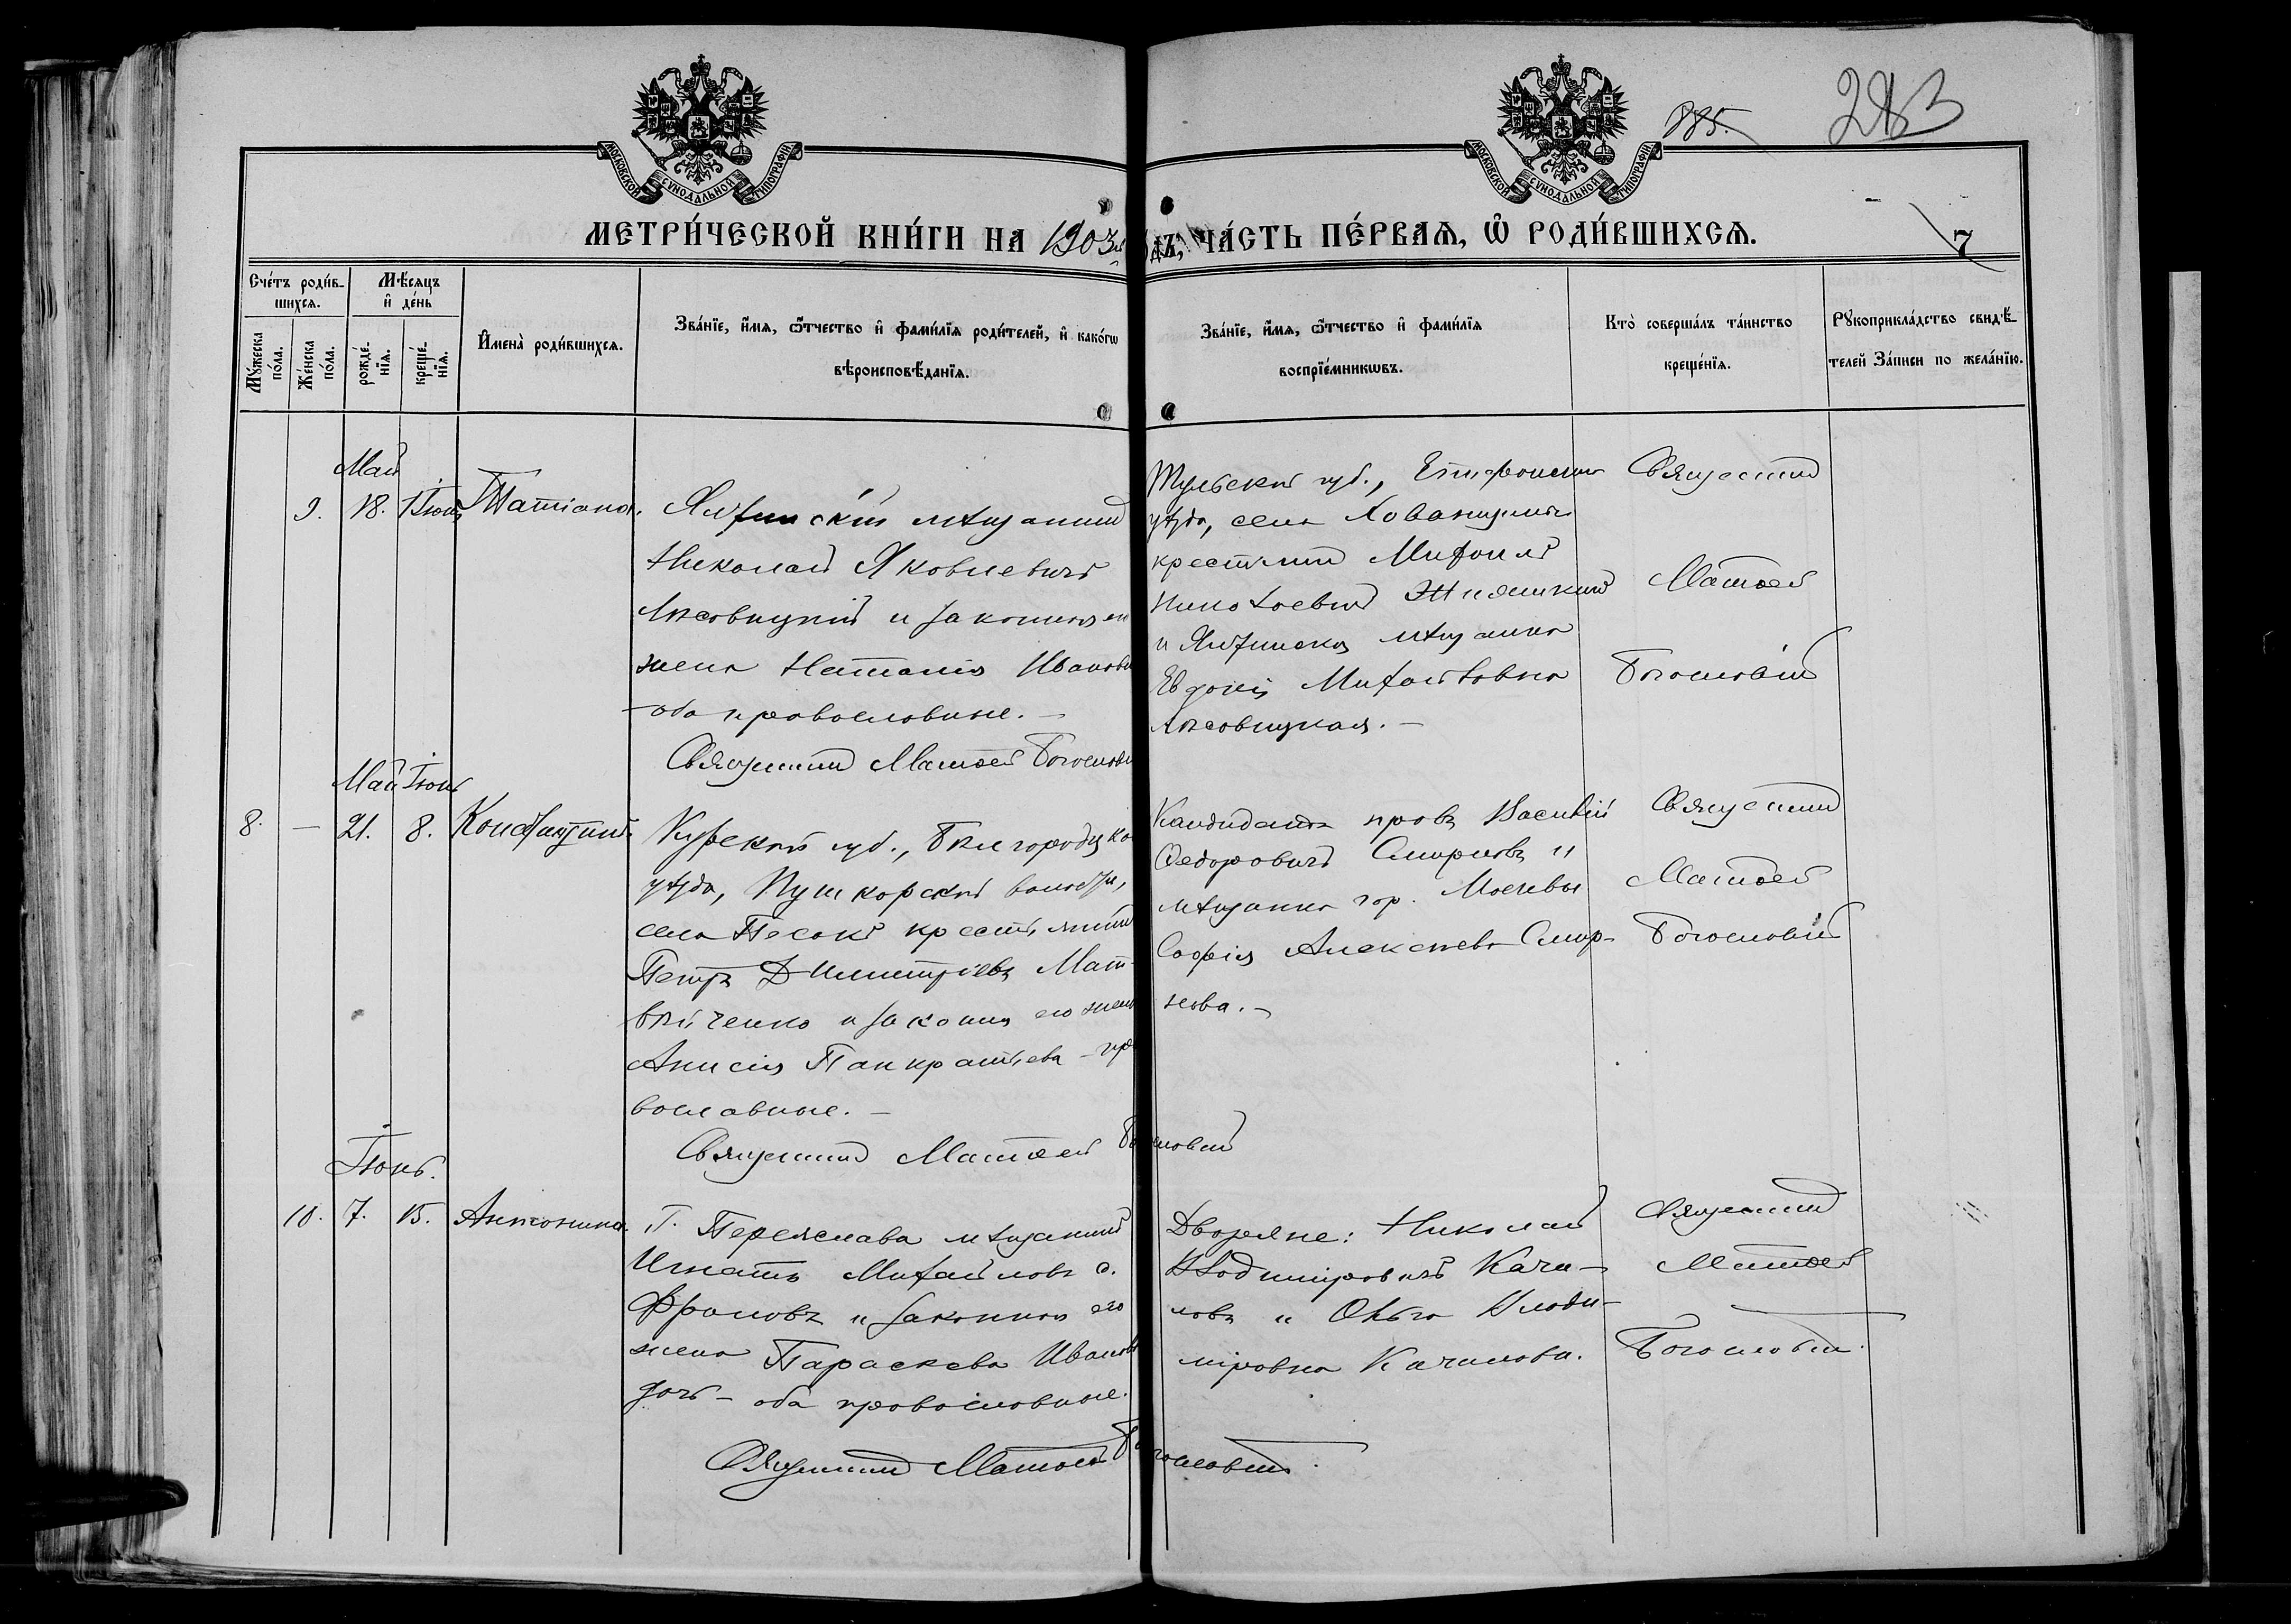 МОСКОВСКОЙ СУНОДАЛЬНОЙ ТИПОГРАФИИ
МОСКОВСКОЙ СУНОДАЛЬНОЙ ТИПОГРАФИИ
283
МЕТРИ́ЧЕСКОЙ КНИ́ГИ НА 1903 ГОДЪ, ЧА́СТЬ ПЕ́РВАЯ, Ѡ РОДИ́ВШИХСЯ.
7
Сче́тъ роди́в-
шихся.
Му́жеска по́ла.
Же́нска по́ла.
Мѣ́сяцъ и де́нь
рожде́-нїя.
креще́-нїя.
И҆мена̀ роди́вшихся.
Зва́нїе, и҆́мя, ѻ҆́тчество и҆ фами́лїя роди́телей, и҆ како́гѡ
вѣроисповѣ́данїя.
Зва́нїе, и҆́мя, ѻ҆́тчество и҆ фами́лїя
воспрїе́мникѡвъ.
Кто̀ соверша́лъ та́инство
креще́нїя.
Рꙋкоприкла́дство свидѣ́-
телей За́писи по жела́нїю.
Май
9. 18. 1 Іюнь Татіана.
Ялтинскій мѣщанинъ
Николай Яковлевичъ
Лисовицкій и законная
жена Наталія Иванова
оба православные. —
Священникъ Матѳей Богословскій
Тульской губ., Епифанскаго
уѣзда, села Хованщины
крестьянинъ Михаилъ
и Ялтинская мѣщанка
Евдокія Михайловна
Лисовицкая. —
Священникъ
Матѳей
Богословскій
Май Іюнь
8. — 21. 8. Константинъ.
Курской губ., Бѣлгородска
уѣзда, Пушкарской волости,
села крестьянинъ
Петръ Димитріевъ Мат-
вѣйченко и законная его жена
Анисія Панкратьева - пра
вославные. —
Священникъ Матѳей Богословскій
Кандидатъ правъ Василій
Федоровичъ Смирновъ и
мѣщанка гор. Москвы
Софія Алексѣева Смир-
нова. —
Священникъ
Матѳей
Богословскій
Іюнь.
10. 7. 15. Антонина.
Г. Переяслава мѣщанинъ
Игнатъ Михайловъ с.
Фроловъ и законная его
жена Параскева Иванова
дочь - оба православные.
Священникъ Матѳей Богословскій
Дворяне: Николай
Владиміровичъ Качи-
ловъ и Ольга Влади-
міровна Качилова.
Священникъ
Матѳей
Богословскій.